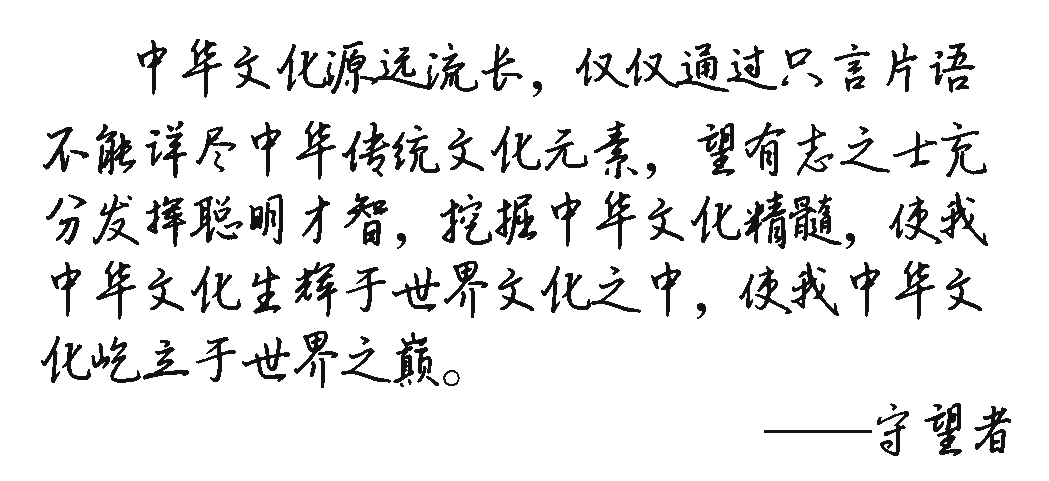 中华文化源远流长，仅仅通过只言片语
不能详尽中华传统文化元素，望有志之士充
分发挥聪明才智，挖掘中华文化精髓，使我
中华文化生辉于世界文化之中，使我中华文
化屹立于世界之巅。
——守望者